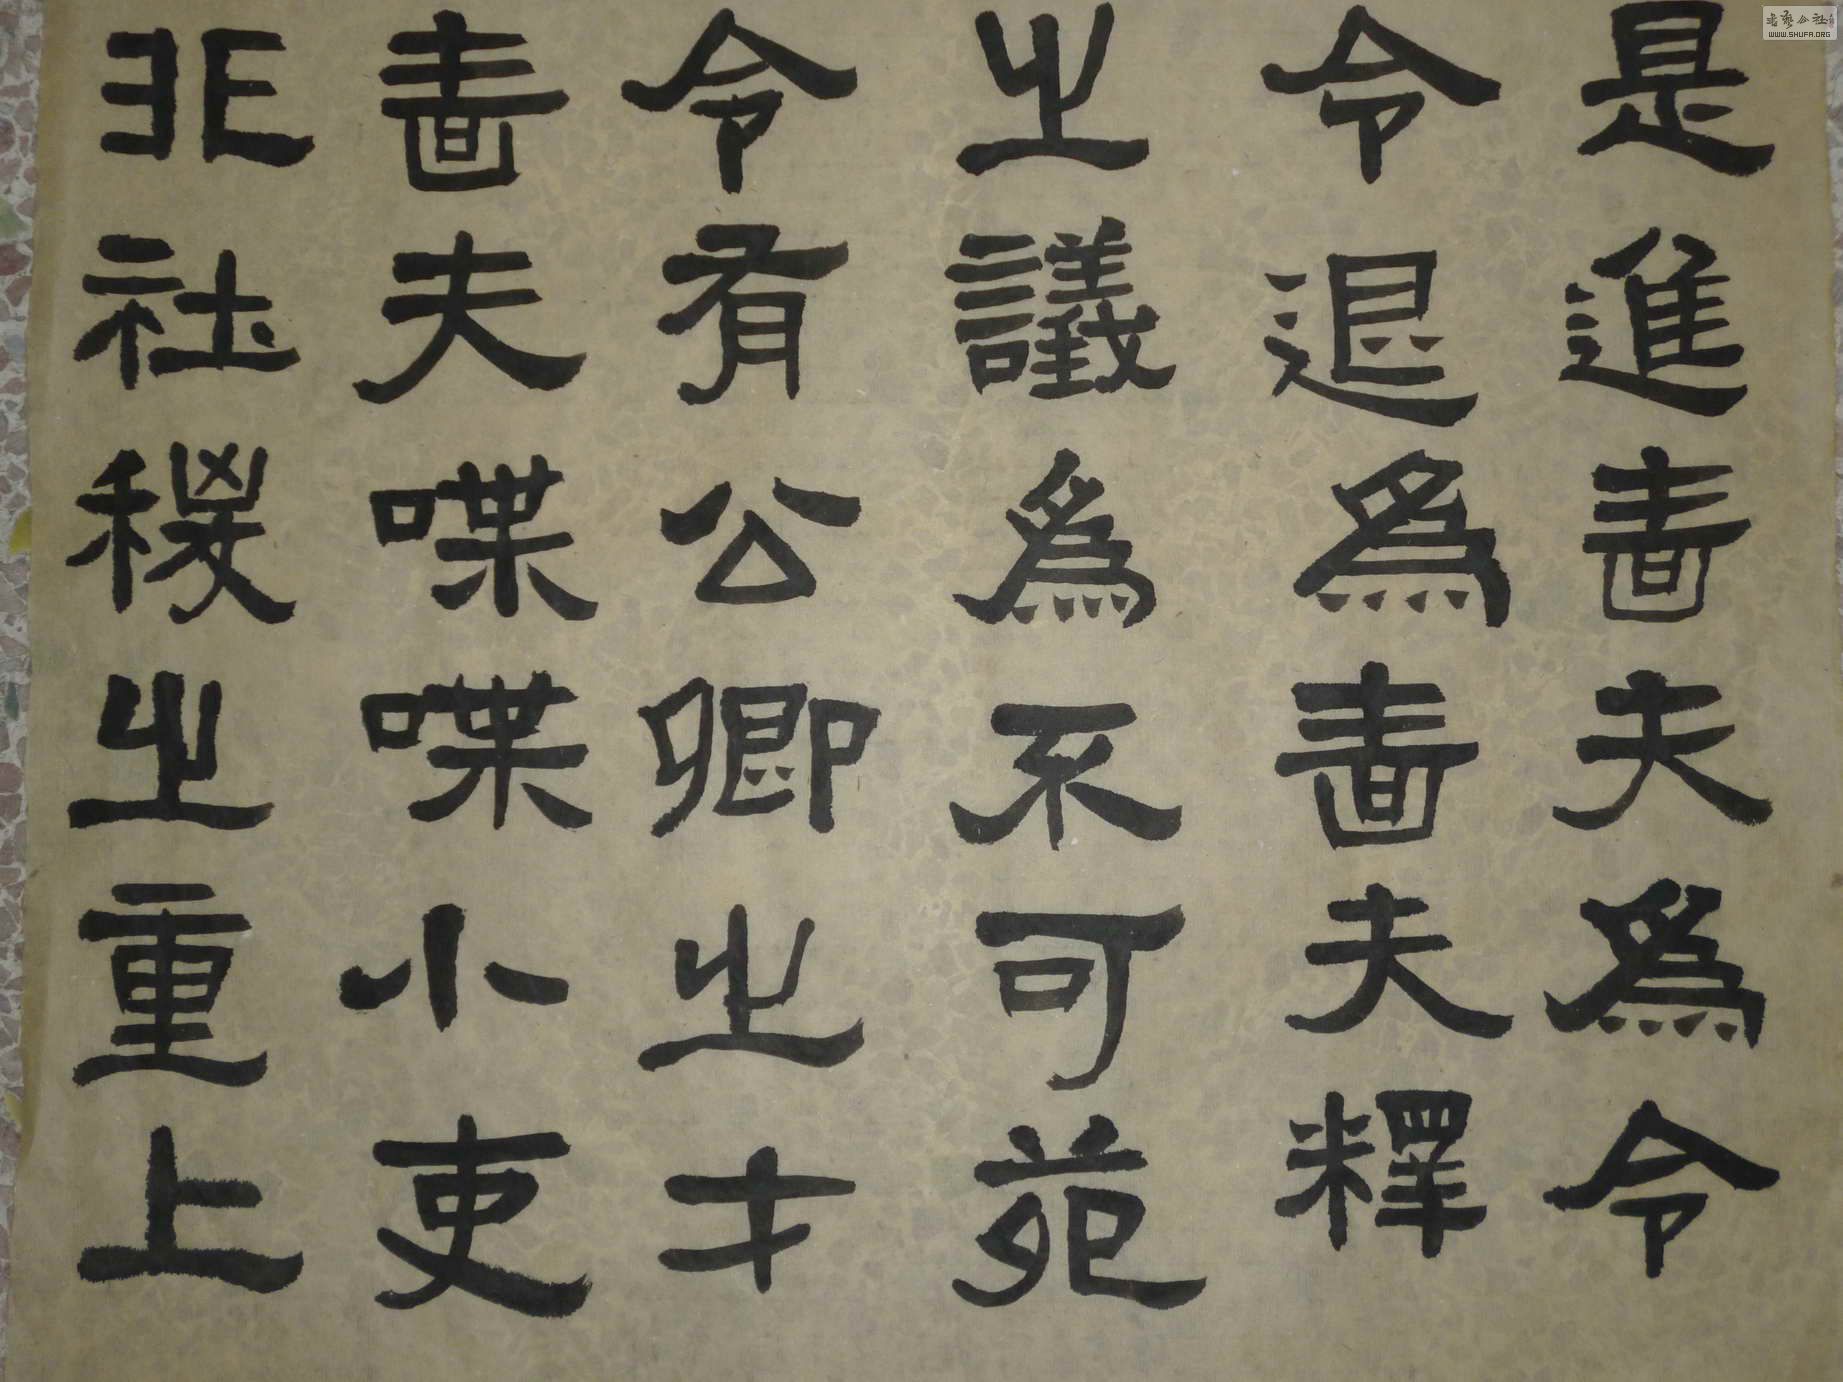 是進嗇夫爲令
令退爲嗇夫釋
之議爲不可苑
令有公卿之才
嗇夫喋喋小吏
非社稷之重上
書藝公社
WWW.SHUFA.ORG